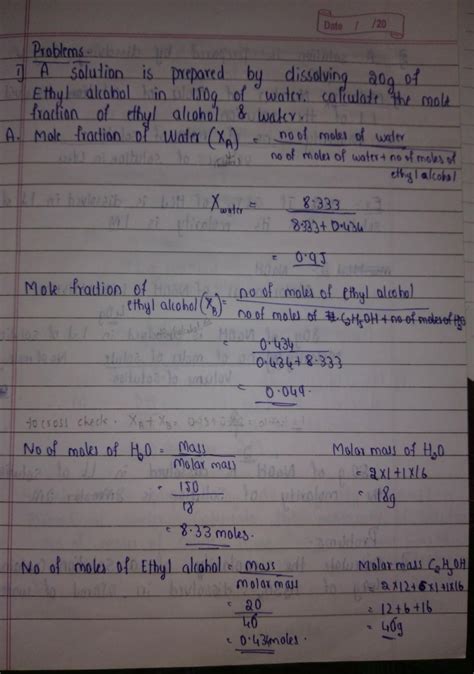 Date / /20
Problems -
1) A solution is prepared by dissolving 20g of
Ethyl alcohol in 150g of water. calculate the mole
fraction of ethyl alcohol & water.
A. Mole fraction of Water (XA) = no of moles of water
no of moles of water + no of moles of
ethyl alcohol
Xwater = 8.333
8.33 + 0.434
= 0.95
Mole fraction of
ethyl alcohol (XB) = no of moles of ethyl alcohol
no of moles of C2H5OH + no of moles of H2O
= 0.434
0.434 + 8.333
= 0.049.
to cross check - XA + XB =
No of moles of H2O = Mass
Molar mass
= 150
18
= 8.33 moles.
Molar mass of H2O
= 2x1+1x16
= 18g
No of moles of Ethyl alcohol = Mass
Molar mass
= 20
46
= 0.434moles.
Molar mass C2H5OH
= 2x12+6x1+1x16
= 12+6+16
= 46g